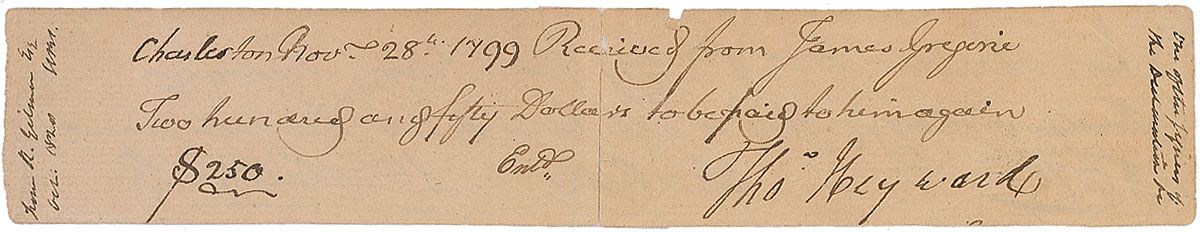 Charleston Novr 28th 1799 Received from James Gregorie
Two hundred and fifty Dollars to be paid to him again
$250. Entd.
Thos Heyward
from R. Gilman Esq
Octr. 1828
One of the signers of
the Declaration